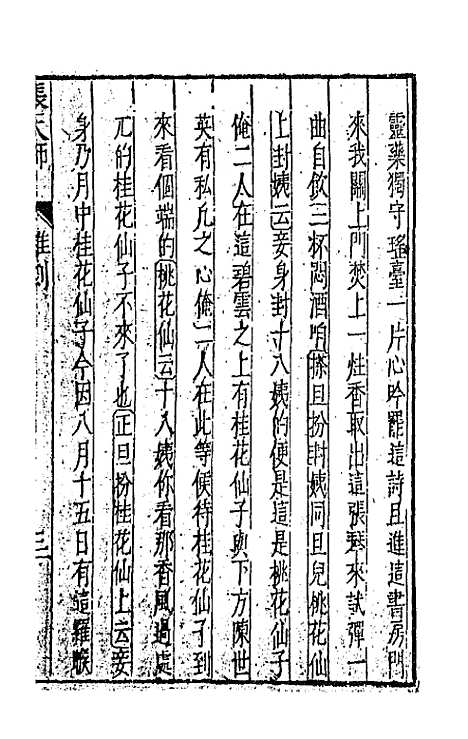 靈藥獨守瑤臺一片心吟罷這詩且進這書房門
來我關上門焚上一炷香取出這張琴來試彈一
曲自飲三杯悶酒咱搽旦扮封姨同旦兒桃花仙
上封姨云妾身封十八姨的便是這是桃花仙子
俺二人在這碧雲之上有桂花仙子與下方陳世
英有私凡之心俺二人在此等候待桂花仙子到
來看個端的桃花仙云十八姨你看那香風過處
兀的桂花仙子不來了也正旦扮桂花仙上云妾
身乃月中桂花仙子今因八月十五日有這羅睺
張天師
雜劇
三